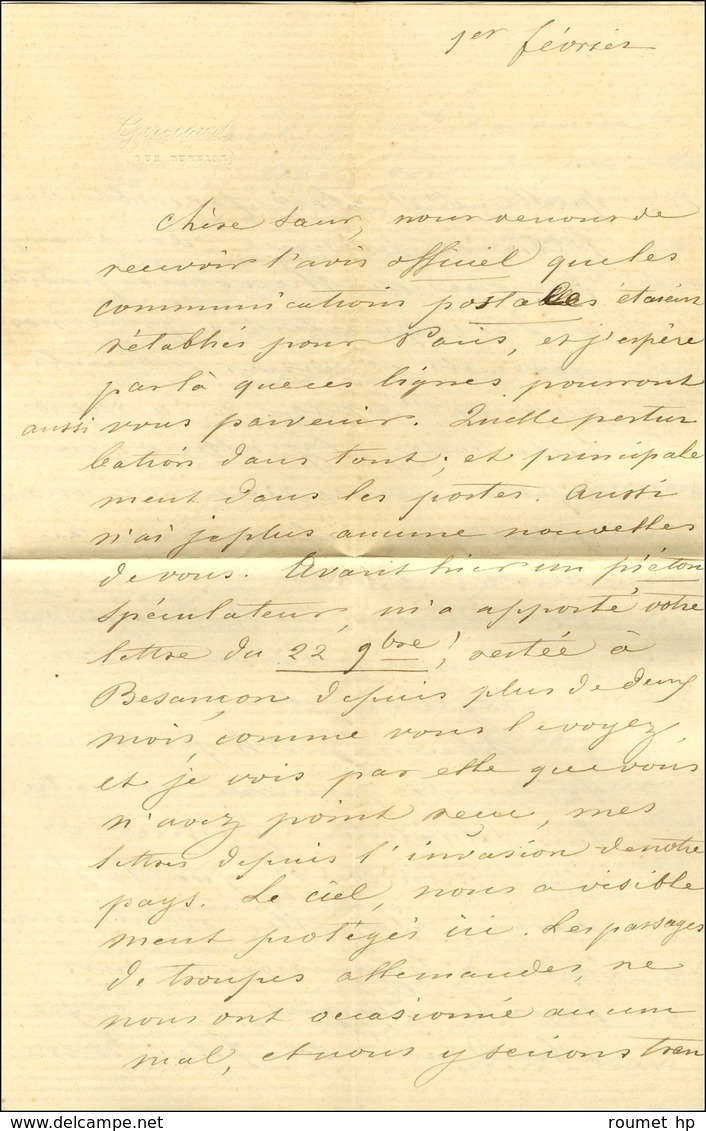 1er février
Chère sœur, nous venons de
recevoir l'avis officiel que les
communications postales étaient
rétablies pour Paris, et j'espère
par là que ces lignes pourront
aussi vous parvenir. Quelle pertur
bation dans tout; et principale
ment dans les postes. Aussi
n'ai je plus aucune nouvelles
de vous. Avant hier un piéton
spéculateur, m'a apporté votre
lettre du 22 9bre! restée à
Besançon depuis plus de deux
mois, comme vous le voyez,
et je vois par elle que vous
n'avez point reçu, mes
lettres depuis l'invasion de notre
pays. Le ciel, nous a visible
ment protégés ici. Les passages
de troupes allemandes, ne
nous ont occasionné aucun
mal, et nous y serions
roumet hp